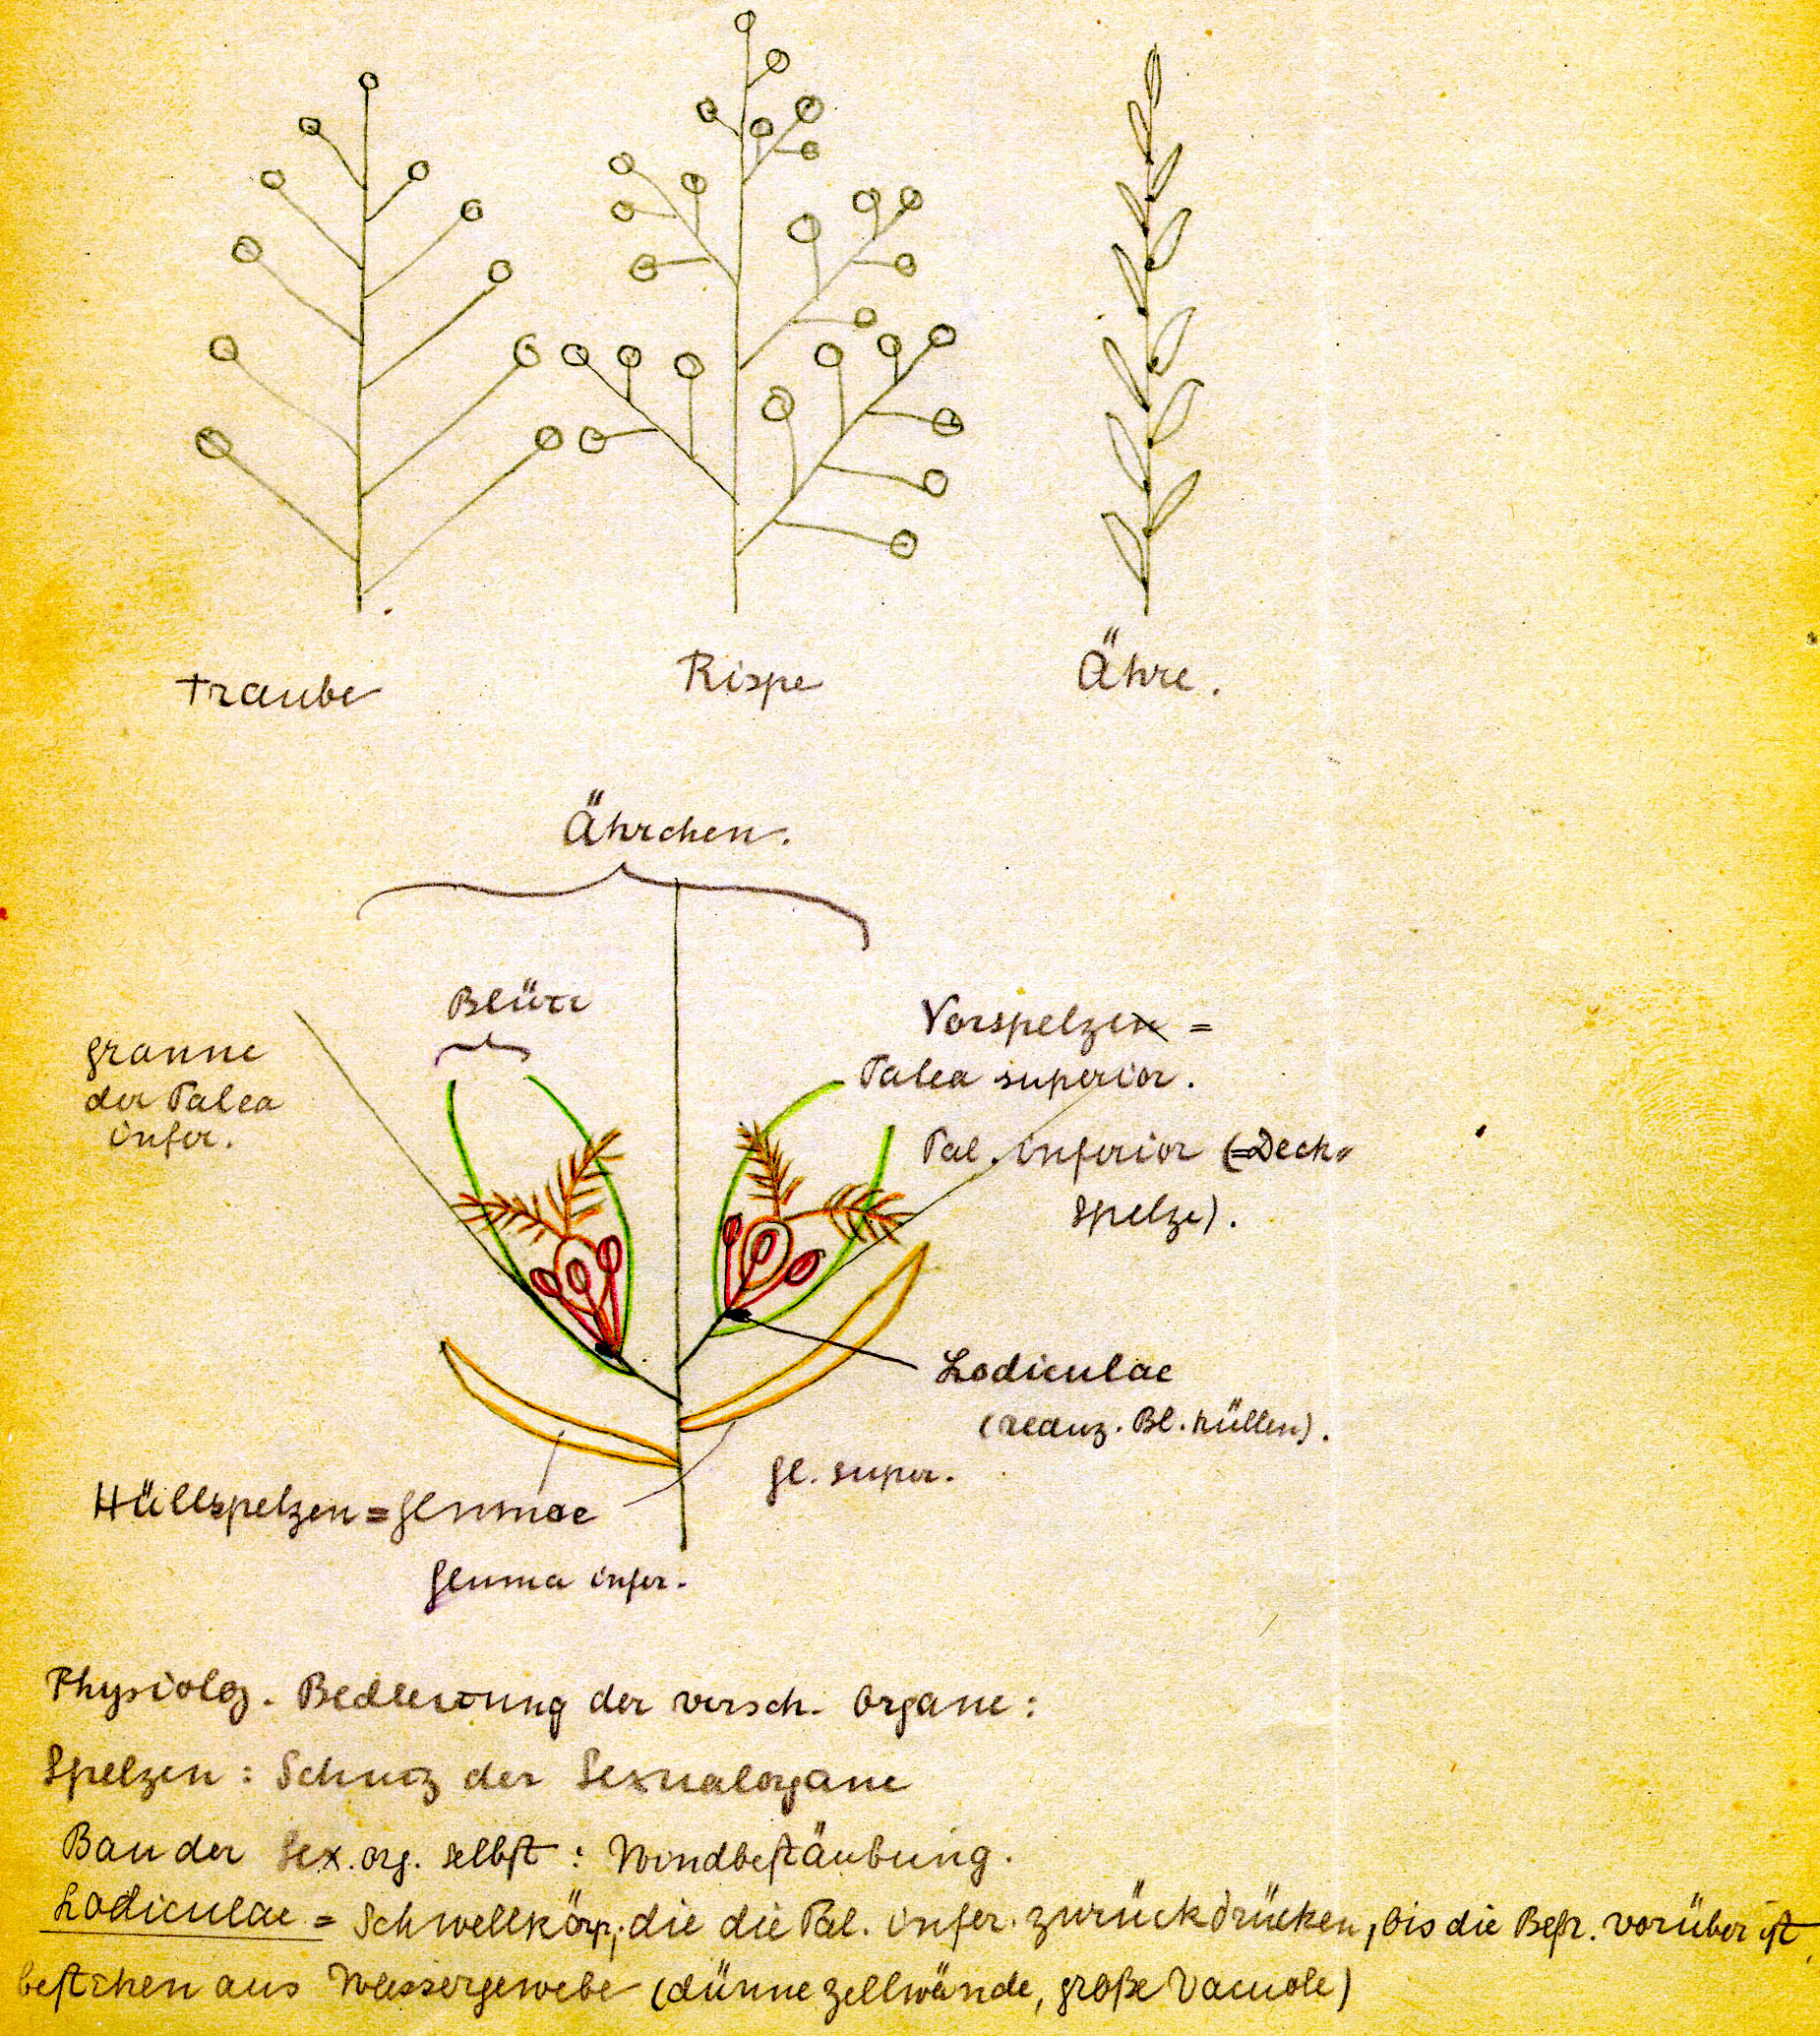 Traube
Rispe
Ähre.
Ährchen.
Blüte
Granne
der Palea
infer.
Vorspelzen =
Palea superior.
Pal. inferior (=Deck=
spelze).
Lodiculae
(reduz. Bl. hüllen).
Gl. super.
Hüllspelzen = Glumae
Gluma infer.
Physiolog. Bedeutung der versch. Organe:
Spelzen: Schutz der Sexualorgane
Bau der Sex. org. selbst: Windbestäubung.
Lodiculae = Schwellkörp., die die Pal. infer. zurückdrücken, bis die Befr. vorüber ist,
bestehen aus Wassergewebe (dünne Zellwände, große Vacuole)